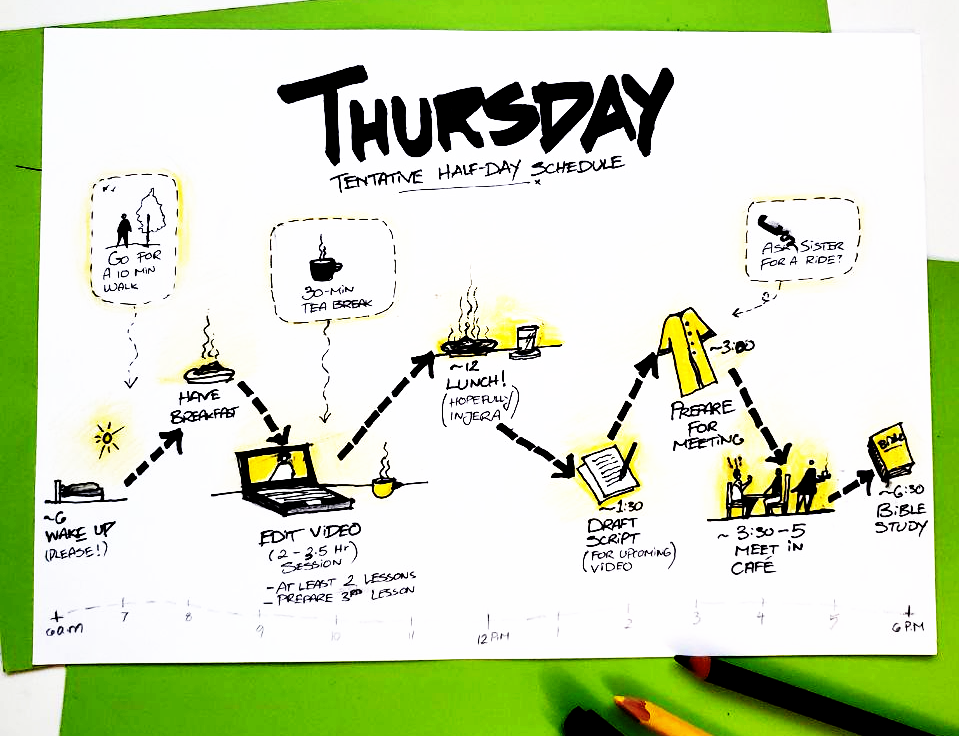 THURSDAY
TENTATIVE HALF-DAY SCHEDULE
GO FOR
A 10 MIN
WALK
30-MIN
TEA BREAK
ASK SISTER
FOR A RIDE?
HAVE
BREAKFAST
~12
LUNCH!
(HOPEFULLY
INJERA)
~3:00
PREPARE
FOR
MEETING
~6
WAKE UP
(PLEASE!)
EDIT VIDEO
(2-3.5 Hr)
SESSION
- AT LEAST 2 LESSONS
- PREPARE 3RD LESSON
~1:30
DRAFT
SCRIPT
(FOR UPCOMING)
VIDEO
~ 3:30-5
MEET IN
CAFÉ
BIBLE
~6:30
BIBLE
STUDY
6am 7 8 9 10 11 12 PM 1 2 3 4 5 6 P.M